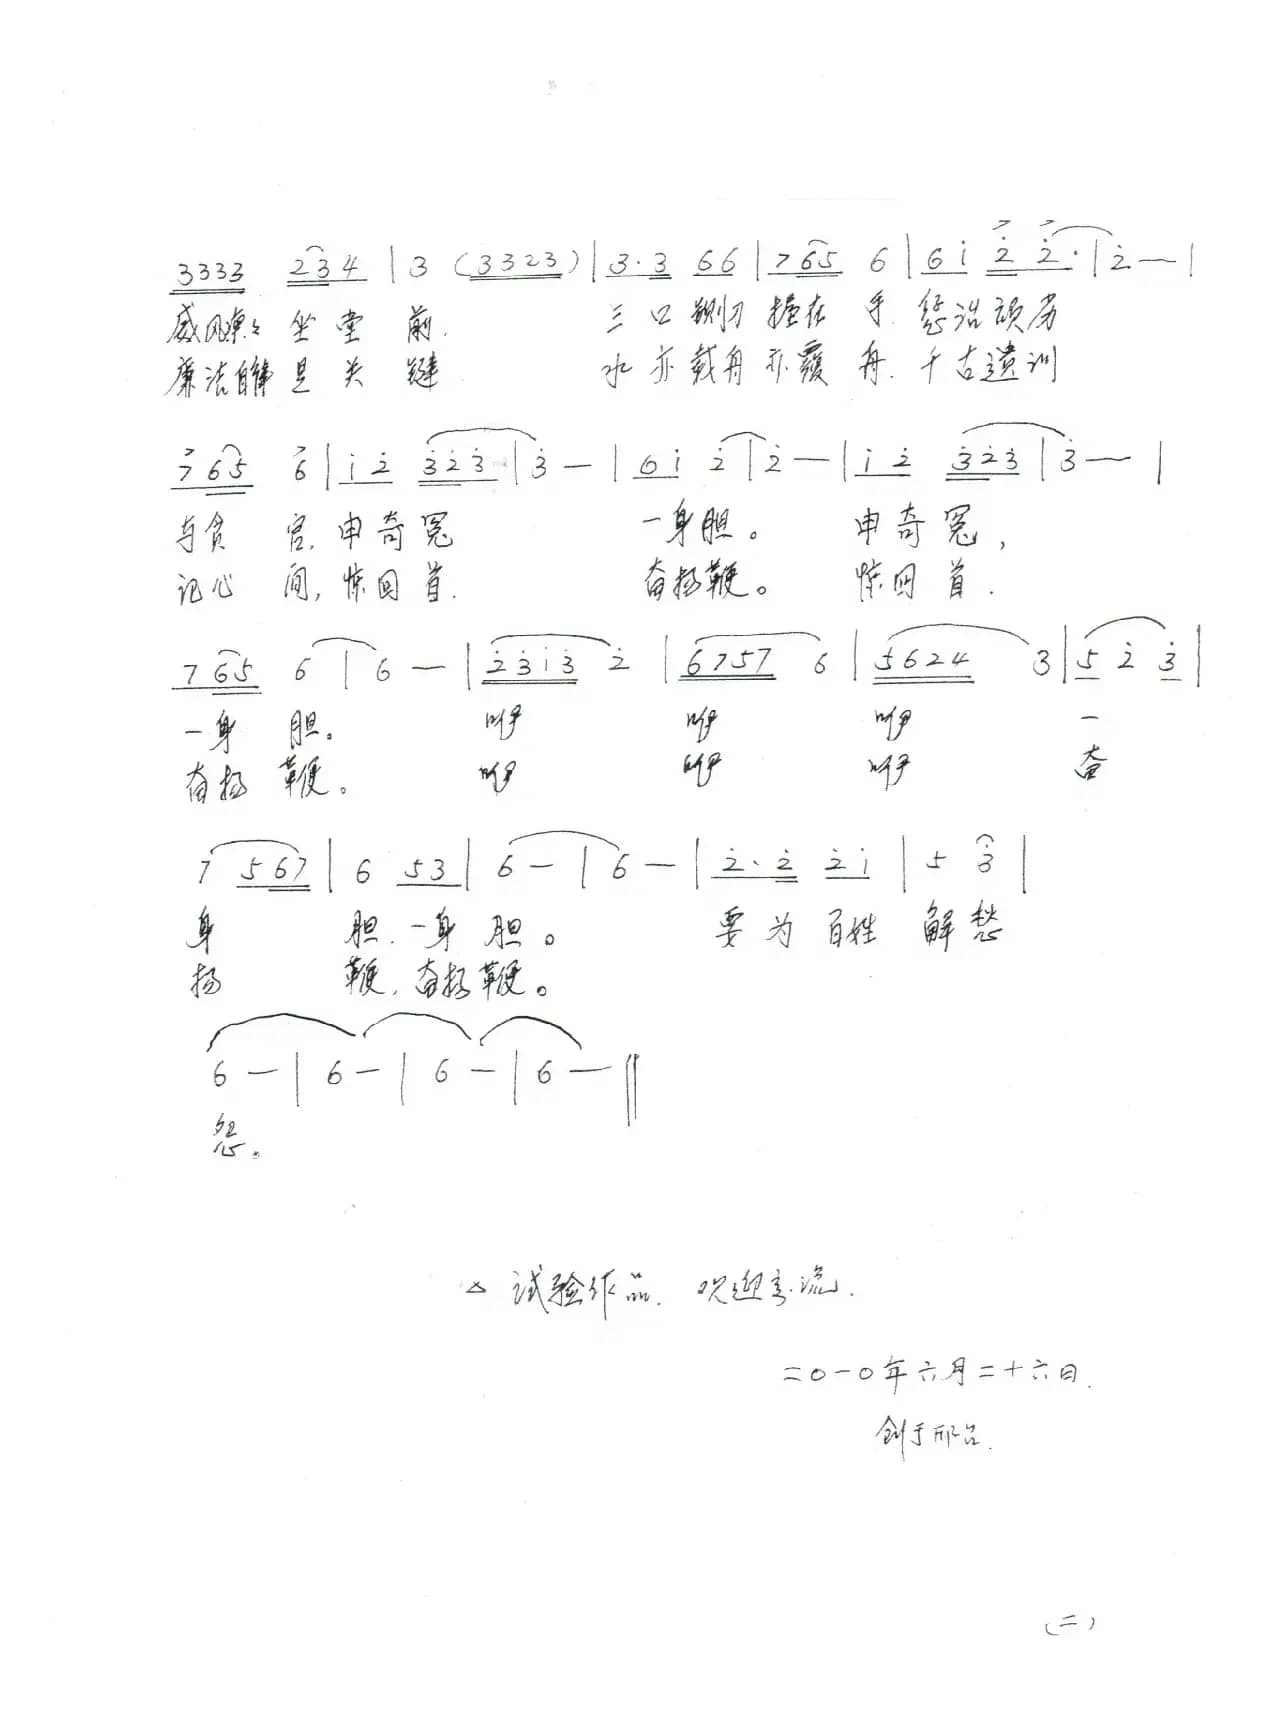 3333 234 | 3 (3323) | 3·3 66 | 765 6 | 6i 2̇ 2̇· | 2̇ — |
威风凛凛坐堂前. 三口铡刀握在手. 惩治顽劣
廉洁自律是关键 水亦载舟亦覆舟. 千古遗训
765 6 | i2̇ 3̇2̇3̇ | 3̇ — | 6i 2̇ | 2̇ — | i2̇ 3̇2̇3̇ | 3̇ — |
与贪官. 申奇冤 一身胆。 申奇冤,
记心间, 惊回首. 奋扬鞭。 惊回首.
765 6 | 6 — | 2̇3̇i3̇ 2̇ | 6757 6 | 5624 3 | 5 2̇ 3̇ |
一身胆。 咿 咿 咿 一
奋扬鞭。 咿 咿 咿 奋
7 567 | 6 53 | 6 — | 6 — | 2̇·2̇ 2̇i | 5 3̇ |
身 胆. 一身胆。 要为百姓解愁
扬 鞭, 奋扬鞭。
6 — | 6 — | 6 — | 6 — ‖
怨。
△ 试验作品. 欢迎交流.
二〇一〇年六月二十六日.
创于邢台.
(二)